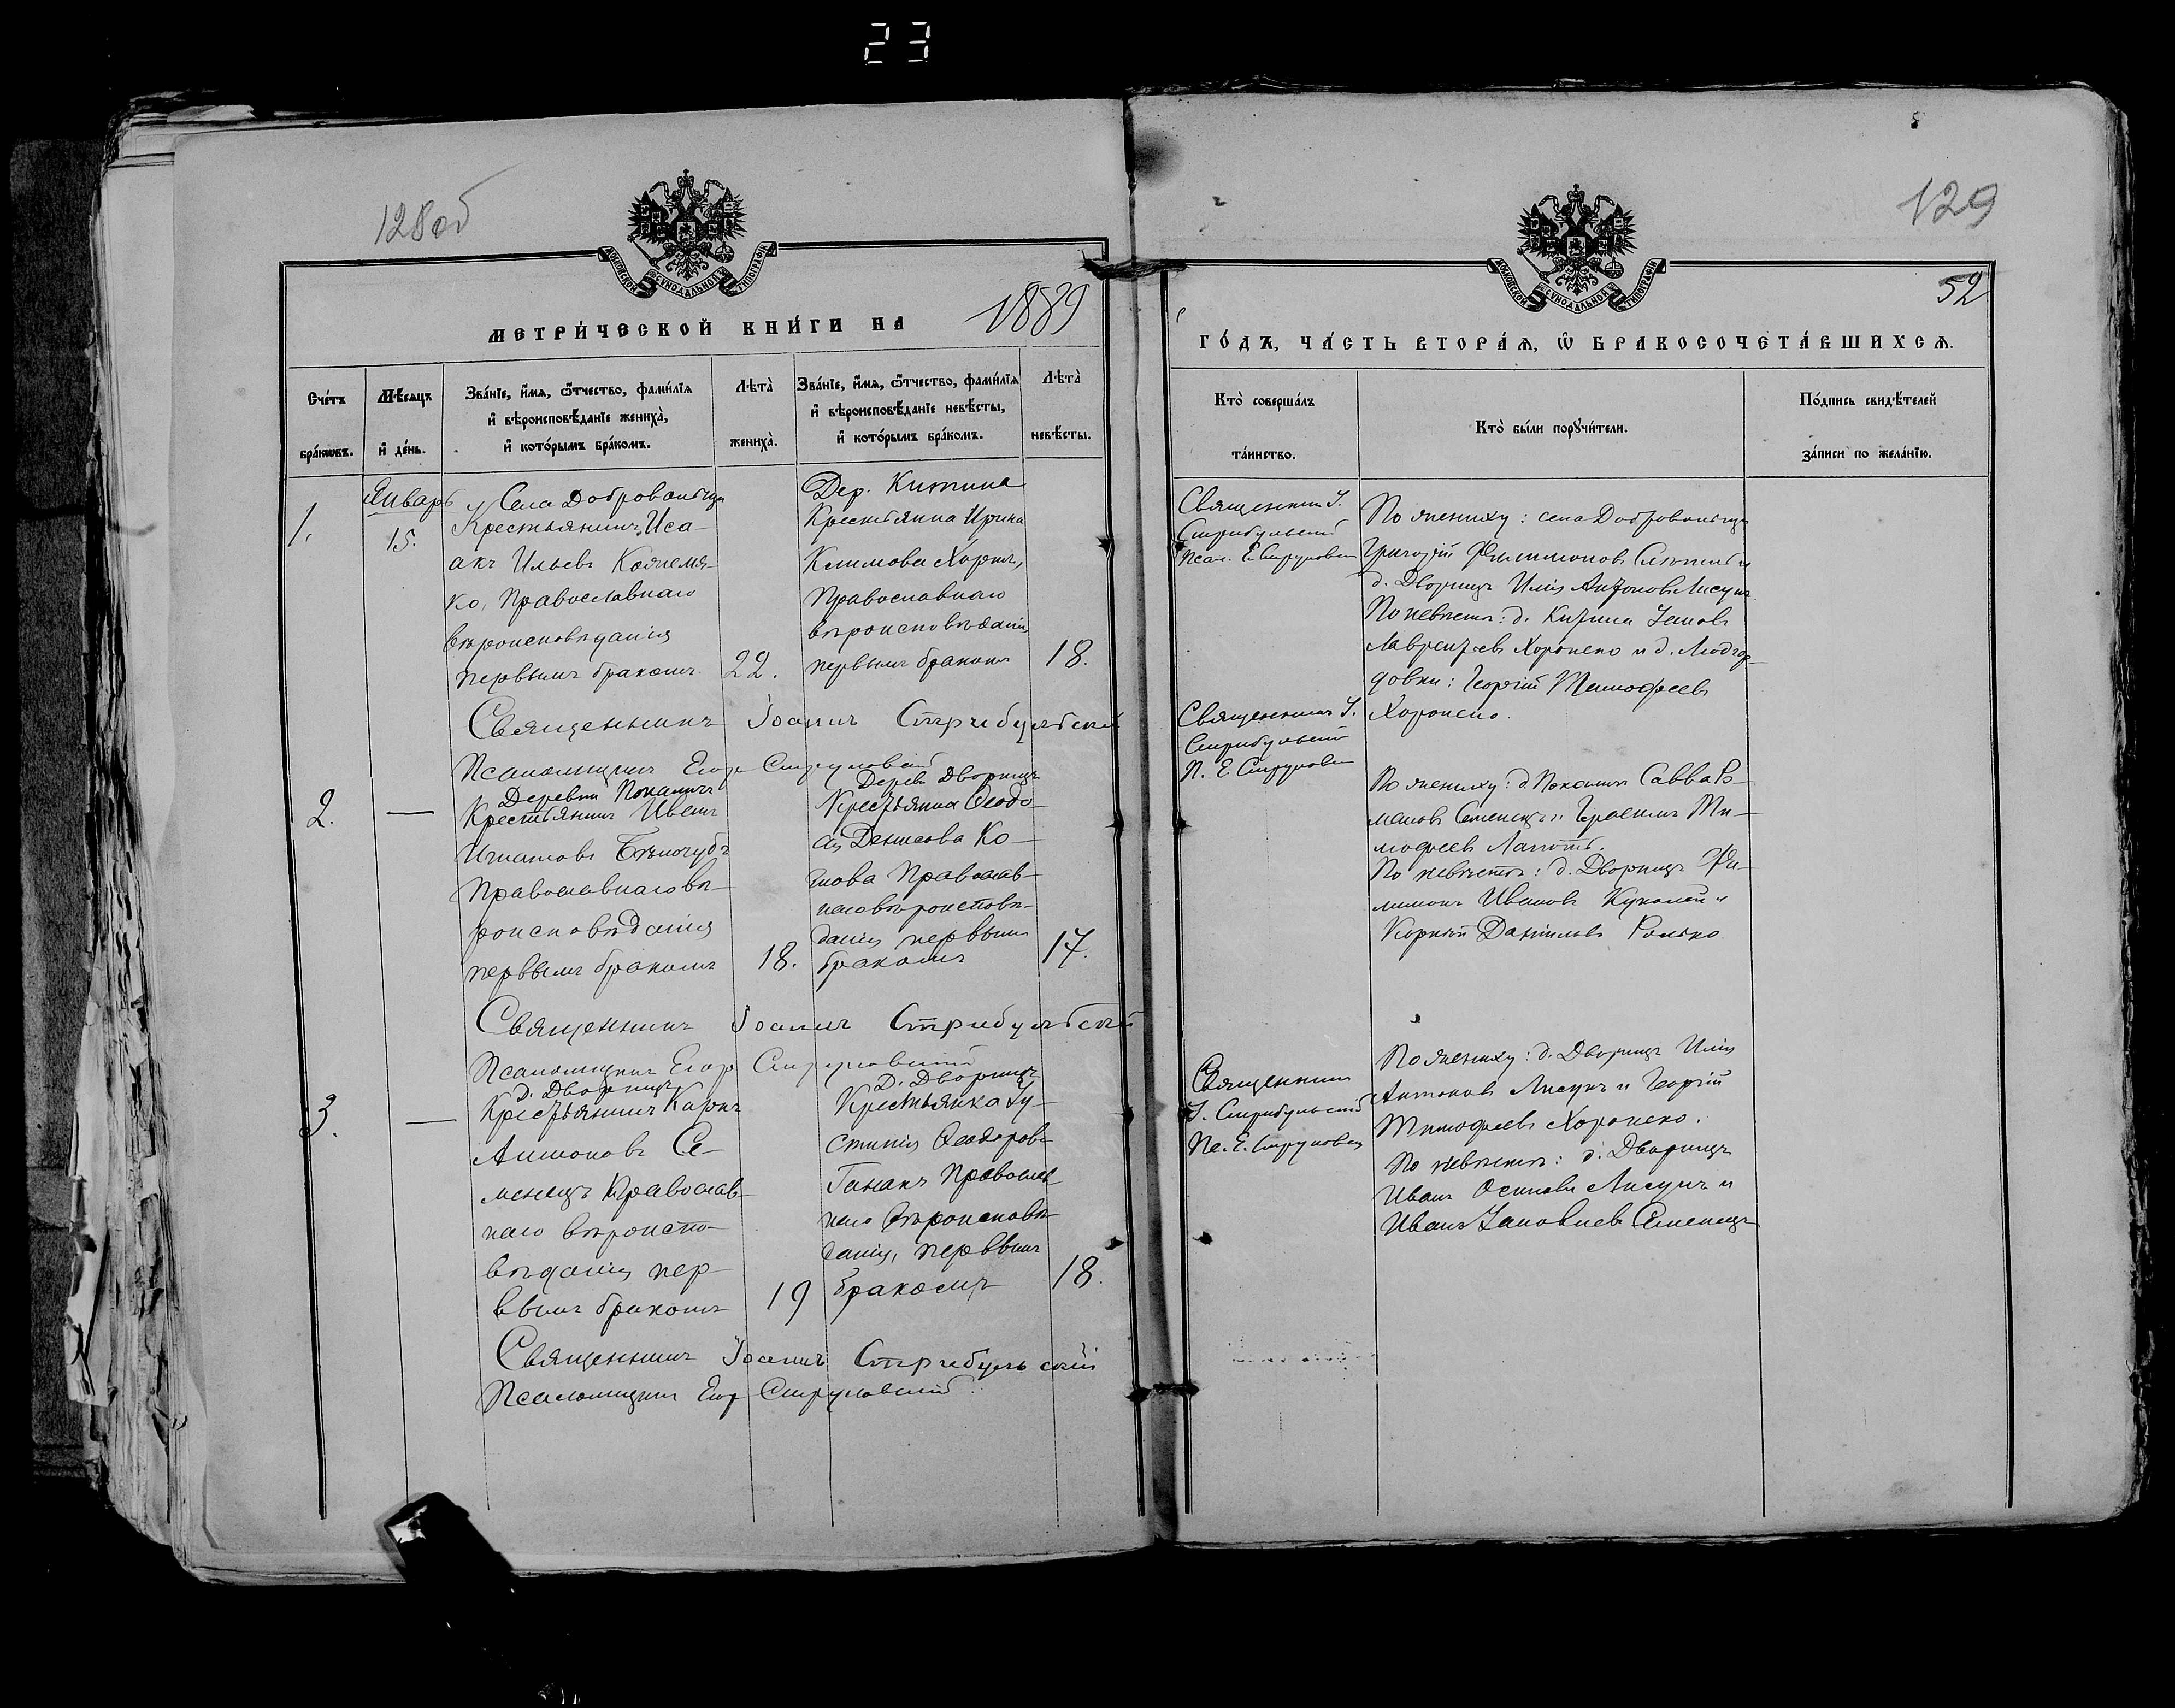 23
128об
129
МОСКОВСКОЙ СУНОДАЛЬНОЙ ТИПОГРАФІИ
МОСКОВСКОЙ СУНОДАЛЬНОЙ ТИПОГРАФІИ
52
МЕТРИ́ЧЕСКОЙ КНИ́ГИ НА 1889
ГО́ДЪ, ЧА́СТЬ ВТОРА́Ѧ, Ѡ҆ БРАКОСОЧЕТА́ВШИХСѦ.
Сче́тъ бра́кѡвъ.
Мѣ́сѧцъ и҆ де́нь.
Зва́нїе, и҆́мѧ, ѻ҆́тчество, фами́лїѧ
и҆ вѣроисповѣ́данїе жениха̀,
и҆ кото́рымъ бра́комъ.
Лѣта̀ жениха̀.
Зва́нїе, и҆́мѧ, ѻ҆́тчество, фами́лїѧ
и҆ вѣроисповѣ́данїе невѣ́сты,
и҆ кото́рымъ бра́комъ.
Лѣта̀ невѣ́сты.
Кто̀ соверша́лъ та́инство.
Кто̀ бы́ли порꙋчи́тели.
По́дпись свидѣ́телей за́писи по жела́нїю.
1.
Январь
15.
Села
Крестьянинъ Иса-
акъ Ильевъ Кожемя-
ко, Православнаго
вѣроисповѣданія
первымъ бракомъ
22.
Дер. Китина
Крестьянка Ирина
Климова
Православнаго
вѣроисповѣданія
первымъ бракомъ
18.
Священникъ І.
Стрибульскій
По жениху: села
Григорій Филимоновъ
д. Дворищъ Илія Антоновъ Лисунъ
По невѣстѣ: д. Китина
Лаврентьевъ Хоронеко и д.
Георгій Тимофеевъ
Хоронеко.
Священникъ Іоаннъ Стрибульскій
Псаломщикъ Егор
2.
—
Деревни
Крестьянинъ Иванъ
Игнатовъ Бѣлочубъ
Православнаго вѣ-
роисповѣданія
первымъ бракомъ
18.
Дерев. Дворищъ
Крестьянка Ѳеодо-
Денисова Ко-
Православ-
наго вѣроисповѣ-
данія первымъ
бракомъ
17.
Священникъ І.
Стрибульскій
По жениху: д. Савва Ро-
мановъ Семенецъ и Ти-
мофеевъ Лапоть.
По невѣстѣ: д. Дворищъ Фи-
лимонъ Ивановъ и
Корній Даніиловъ
Священникъ Іоаннъ Стрибульскій
Псаломщикъ Егор
3.
—
д. Дворищъ
Крестьянинъ Карпъ
Антоновъ Се-
менецъ Православ-
наго вѣроиспо-
вѣданія пер-
вымъ бракомъ
19
Д. Дворищъ
Крестьянка Іу-
стинія Ѳеодорова
Православ-
наго вѣроисповѣ-
данія, первымъ
бракомъ
18.
Священникъ
І. Стрибульскій
По жениху: д. Дворищъ Илія
Антоновъ Лисунъ и Георгій
Тимофеевъ Хоронеко.
По невѣстѣ: д. Дворищъ
Иванъ Осиповъ Лисунъ и
Иванъ Семенецъ
Священникъ Іоаннъ Стрибульскій
Псаломщикъ Егор